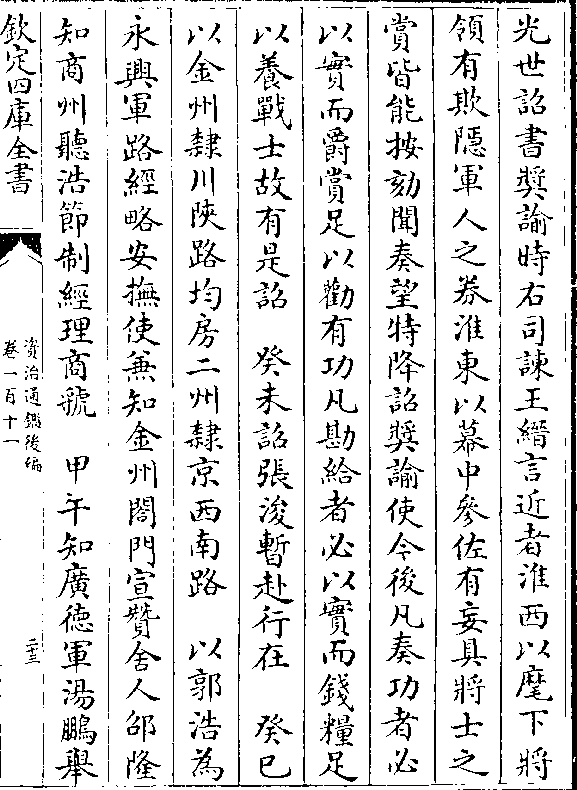 光世詔書奬諭時右司諫王縉言近者淮西以麾下將
領有欺隱軍人之券淮東以幕中參佐有妄具將士之
賞皆能按劾聞奏望特降詔奬諭使今後凡奏功者必
以實而爵賞足以勸有功凡勘給者必以實而錢糧足
以養戰士故有是詔　癸未詔張浚暫赴行在　癸巳
以金州隸川陜路均房二州隸京西南路　以郭浩為
永興軍路經略安撫使兼知金州閤門宣贊舍人邵隆
知商州聽浩節制經理商虢　甲午知廣德軍湯鵬舉
欽定四庫全書
資治通鑑後編
卷一百十一
二十三